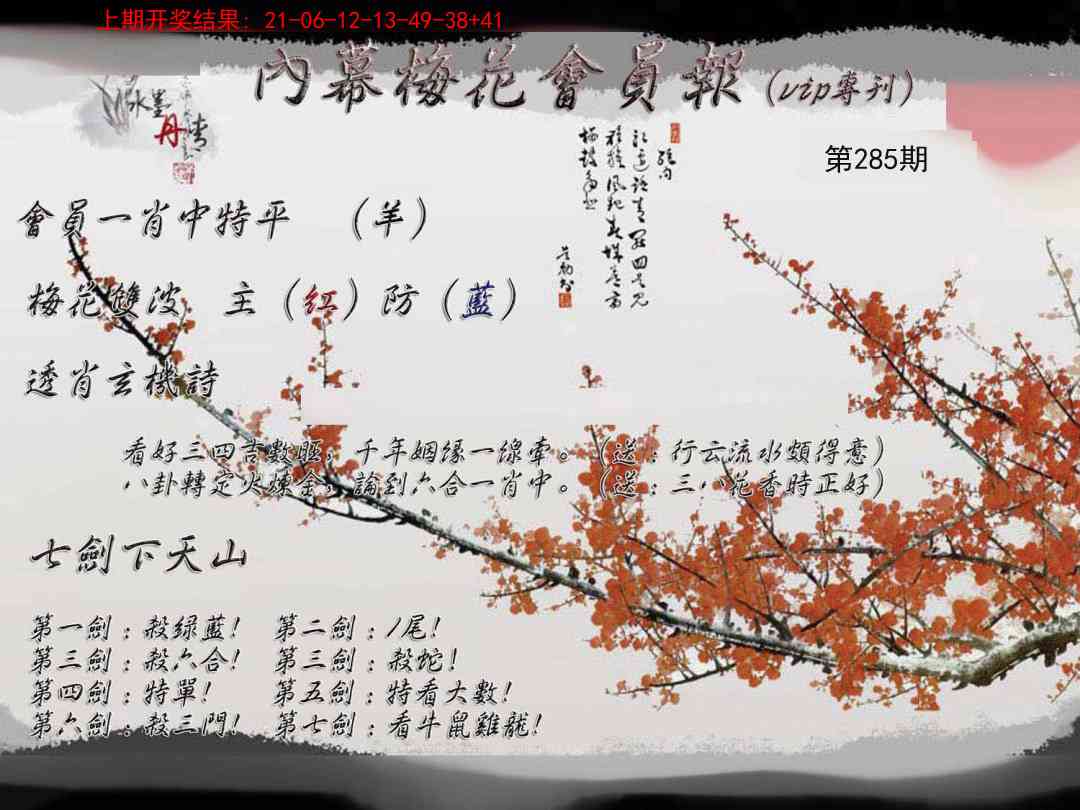 上期开奖结果: 21-06-12-13-49-38+41
內幕梅花會員報(vip專刊)
水墨
丹
第285期
會員一肖中特平 （羊）
梅花雙波 主（紅）防（藍）
透肖玄機詩
看好三四吉數旺，千年姻缘一線牽。（送：行云流水頗得意）
八卦轉定火煉金，論到六合一肖中。（送：三八花香時正好）
七劍下天山
第一劍：殺绿藍! 第二劍：1尾!
第三劍：殺六合! 第三劍：殺蛇!
第四劍：特單! 第五劍：特看大數!
第六劍：殺三門! 第七劍：看牛鼠雞龍!